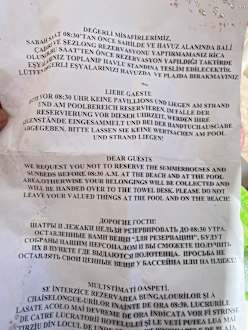 DEĞERLİ MİSAFİRLERİMİZ,
SABAH SAAT 08:30"TAN ÖNCE SAHİLDE VE HAVUZ ALANINDA BALİ
VE ŞEZLONG REZERVASYONU YAPTIRMAMANIZ RİCA
SAAT"TEN ÖNCE REZERVASYON YAPILDIĞI TAKTİRDE
TOPLANIP HAVLU STANDINA TESLİM EDİLECEKTİR.
LÜTFEN DEĞERLİ EŞYALARINIZI HAVUZDA VE PLAJDA BIRAKMAYINIZ
LIEBE GAESTE
VOR 08:30 UHR KEINE PAVILLIONS UND LIEGEN AM STRAND
UND AM POOLBEREICH RESERVIEREN. IM FALLE DER
RESERVIERUNG VOR DIESER UHRZEIT, WERDEN IHRE
GEGENSTÄNDE EINGESAMMELT UND BEI DER HANDTUCHAUSGABE
ABGEGEBEN. BITTE LASSEN SIE KEINE WERTSACHEN AM POOL
UND STRAND LIEGEN!
DEAR GUESTY
WE REQUEST YOU NOT TO RESERVE THE SUMMERHOUSES AND
SUNBEDS BEFORE 08:30 A.M. AT THE BEACH AND AT THE POOL
AREA.OTHERWISE YOUR BELONGINGS WILL BE COLLECTED AND
WILL BE HANDED OVER TO THE TOWEL DESK. PLEASE DO NOT
LEAVE YOUR VALUABLE THINGS AT THE POOL AND ON THE BEACH!
ДОРОГИЕ ГОСТИ!
ШАТРЫ И ЛЕЖАКИ НЕЛЬЗЯ РЕЗЕРВИРОВАТЬ ДО 08:30 УТРА.
ОСТАВЛЕННЫЕ ВАМИ ВЕЩИ "ДЛЯ РЕЗЕРВАЦИИ", БУДУТ
СОБРАНЫ НАШИМ ПЕРСОНАЛОМ И ВЫ СМОЖЕТЕ ПОЛУЧИТЬ
ИХ В ПУНКТЕ ГДЕ ВЫДАЮТСЯ ПОЛОТЕНЦА. ПРОСЬБА НЕ
ОСТАВЛЯТЬ СВОИ ЦЕННЫЕ ВЕЩИ У БАССЕЙНА ИЛИ НА ПЛЯЖЕ!
MULTSTIMATI OASPETI,
SE INTERZICE REZERVAREA BUNGALOURILOR SI A
CHAISELONGUE-URILOR INAINTE DE ORA 08:30. LUCRURILE
LASATE ACOLO MAI DEVREME DE ORA INDICATA VOR FI STRINSE
DE CATRE LUCRATORII HOTELULUI SI LE VETI PUTEA
DIN LOCUL DE UNDE